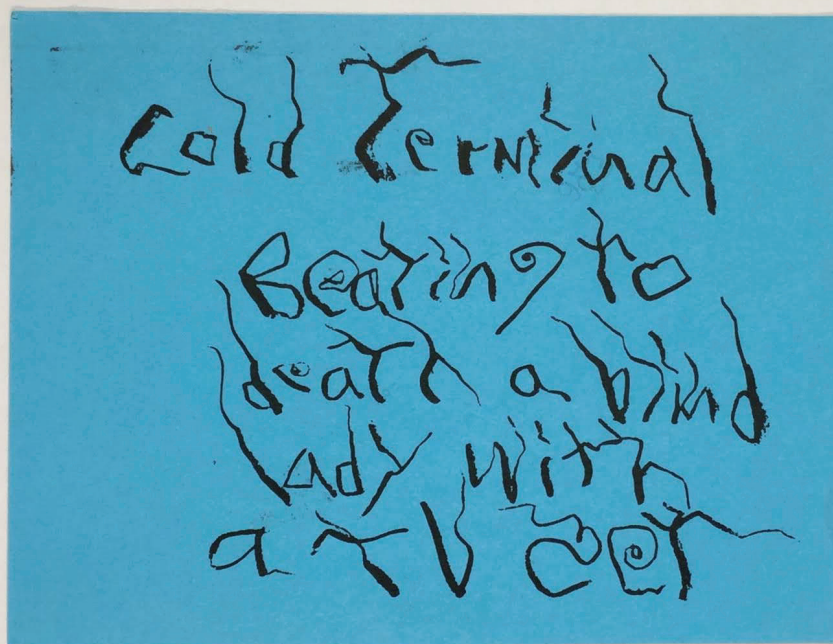 Cold Terminal
Beating to
death a blind
lady with
a TV Set